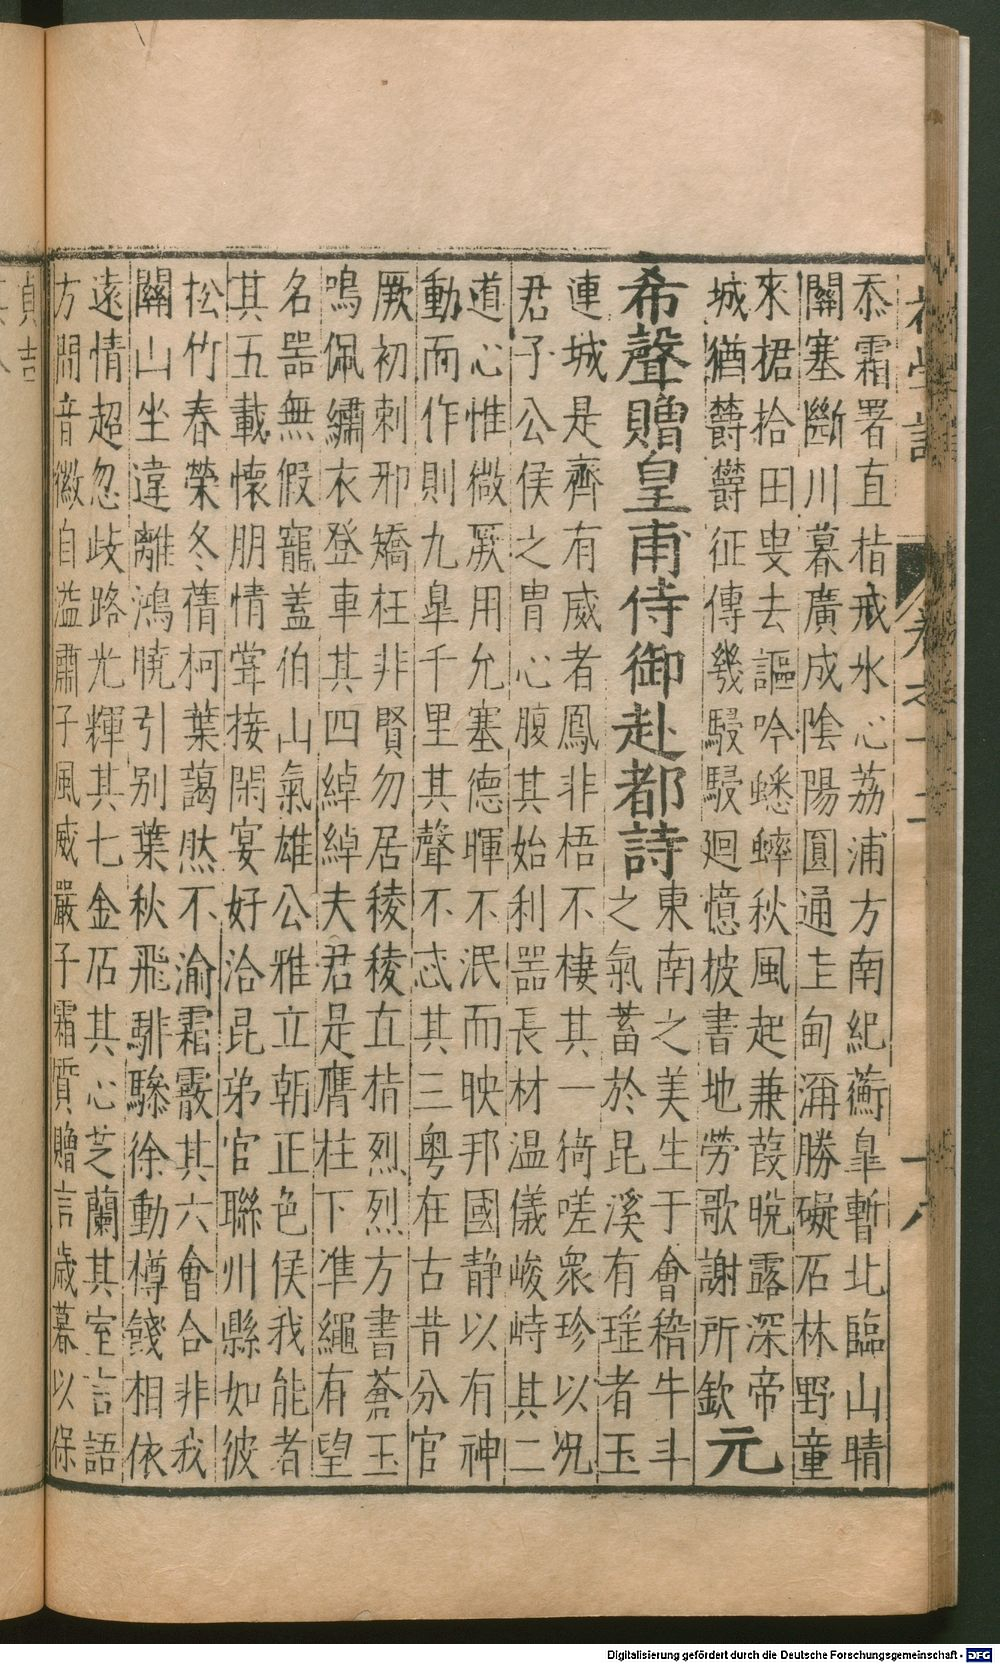 忝霜署直指戒氷心荔浦方南紀蘅臯暫北臨山晴
關塞斷川暮廣成陰陽圓通圭甸瀰勝礙石林野童
來桾拾田叟去謳吟蟋蟀秋風起兼葭晩露深帝
城猶鬱鬱征傳幾駸駸廻憶披書地勞歌謝所欽元
希聲贈皇甫侍御赴都詩
東南之美生于會稽牛斗
之氣蓄於昆溪有瑤者玉
連城是齊有威者鳳非梧不棲其一猗嗟衆珍以况
君子公侯之胄心腹其始利噐長材温儀峻峙其二
道心惟微厥用允塞德暉不泯而映邦國静以有神
動而作則九臯千里其聲不忒其三粤在古昔分官
厥初刺邪矯枉非賢勿居稜稜直指烈烈方書蒼玉
鳴佩繡衣登車其四綽綽夫君是膺柱下準繩有望
名噐無假寵蓋伯山氣雄公雅立朝正色侯我能者
其五載懷朋情甞接閑宴好洽昆弟官聯州縣如彼
松竹春榮冬蒨柯葉藹然不渝霜霰其六會合非我
關山坐違離鴻曉引别葉秋飛騑驂徐動樽餞相依
遠情超忽歧路光輝其七金石其心芝蘭其室言語
方間音徽自溢肅子風威嚴子霜質贈言歲暮以保
貞吉
卷之十二
十八
Digitalisierung gefördert durch die Deutsche Forschungsgemeinschaft - DFG